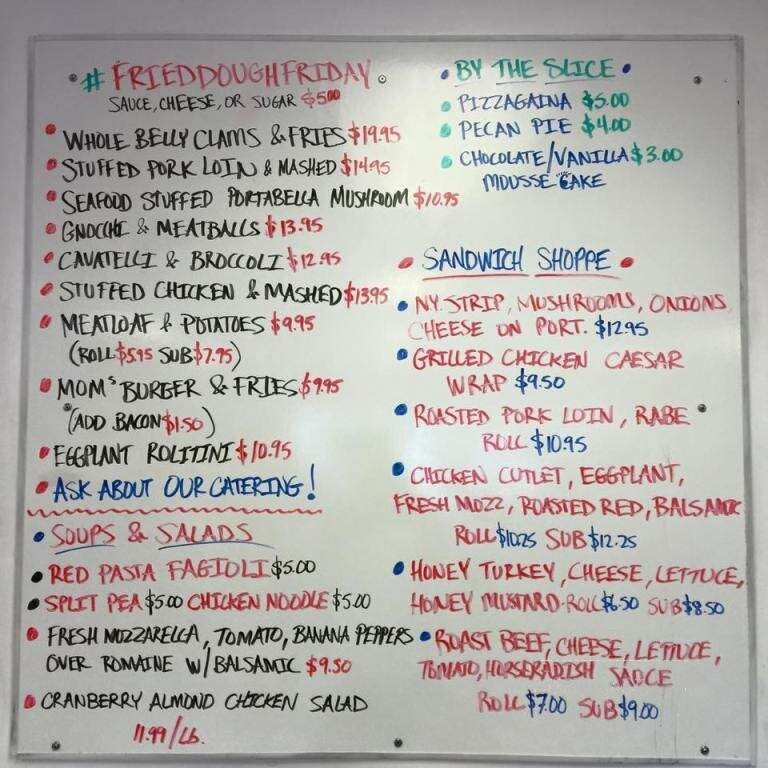 #FRIEDDOUGHFRIDAY
SAUCE, CHEESE, OR SUGAR $5.00
WHOLE BELLY CLAMS & FRIES $19.95
STUFFED PORK LOIN & MASHED $14.95
SEAFOOD STUFFED PORTABELLA MUSHROOM $10.95
GNOCCHI & MEATBALLS $13.95
CAVATELLI & BROCCOLI $12.95
STUFFED CHICKEN & MASHED $13.95
MEATLOAF & POTATOES $9.95
(ROLL $5.95 SUB $7.95)
MOM'S BURGER & FRIES $9.95
(ADD BACON $1.50)
EGGPLANT ROLITINI $10.95
ASK ABOUT OUR CATERING!
SOUPS & SALADS
RED PASTA FAGIOLI $5.00
SPLIT PEA $5.00 CHICKEN NOODLE $5.00
FRESH MOZZARELLA, TOMATO, BANANA PEPPERS
OVER ROMAINE W/BALSAMIC $9.50
CRANBERRY ALMOND CHICKEN SALAD
11.99/LB.
BY THE SLICE
PIZZAGAINA $5.00
PECAN PIE $4.00
CHOCOLATE/VANILLA $3.00
MOUSSE CAKE
SANDWICH SHOPPE
N.Y. STRIP, MUSHROOMS, ONIONS
CHEESE ON PORT. $12.95
GRILLED CHICKEN CAESAR
WRAP $9.50
ROASTED PORK LOIN, RABE
ROLL $10.95
CHICKEN CUTLET, EGGPLANT,
FRESH MOZZ, ROASTED RED, BALSAMIC
ROLL $10.25 SUB $12.25
HONEY TURKEY, CHEESE, LETTUCE,
HONEY MUSTARD - ROLL $6.50 SUB $8.50
ROAST BEEF, CHEESE, LETTUCE,
TOMATO, HORSERADISH SAUCE
ROLL $7.00 SUB $9.00